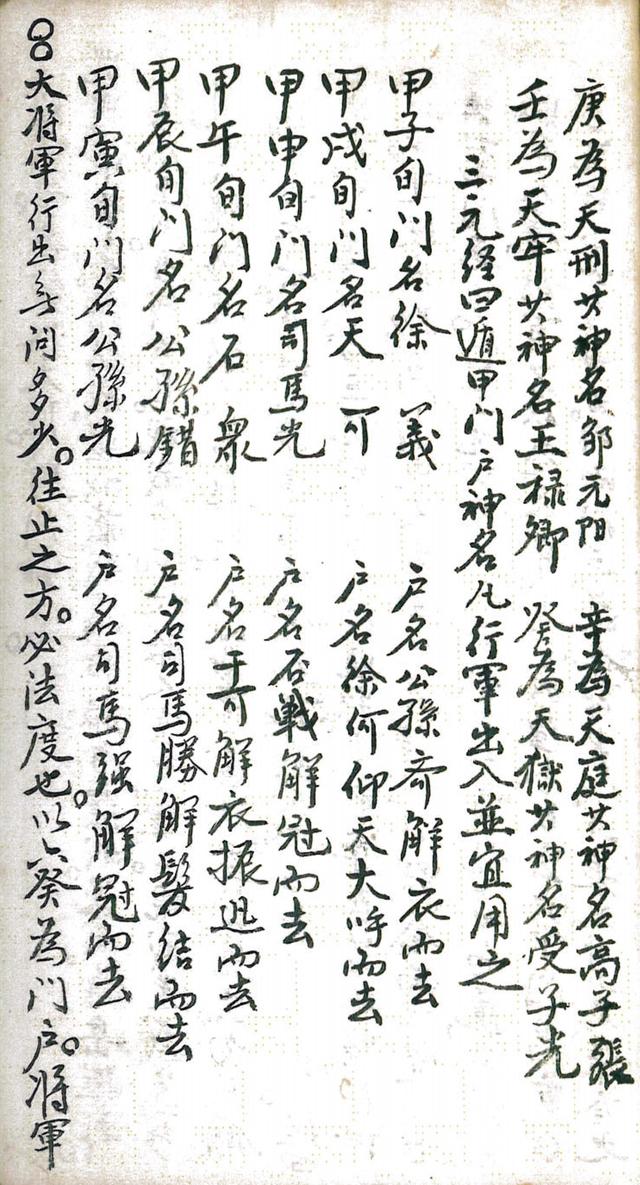 庚為天刑其神名邹元阳　辛為天庭其神名高子張
壬為天牢其神名王禄卿　癸為天獄其神名受子光
三元経曰遁甲门户神名凡行軍出入並宜用之
甲子旬门名徐　義　户名公孫斎解衣而去
甲戌旬门名天　可　户名徐何仰天大呼而去
甲申旬门名司馬光　户名石戰解冠而去
甲午旬门名石　衆　户名于可解衣振迅而去
甲辰旬门名公孫錯　户名司馬勝解髮结而去
甲寅旬门名公孫光　户名司馬强解冠而去
大將軍行出每问多少。往止之方。必法度也。以六癸為门户。將軍